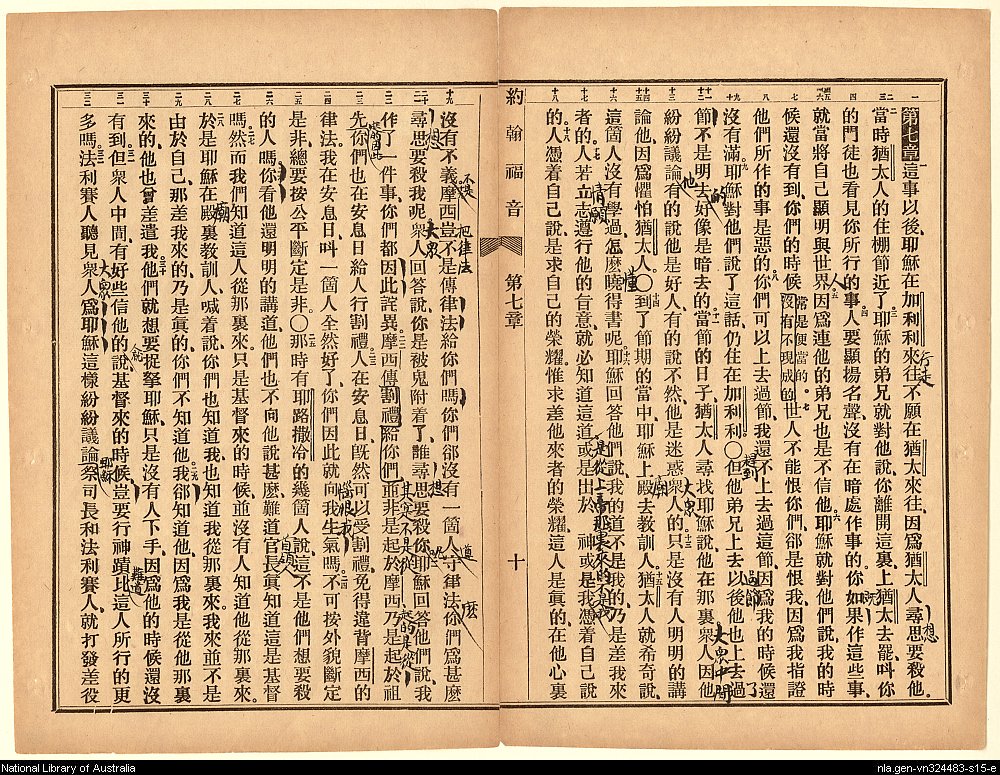 第七章 這事以後耶穌在加利利來往不願在猶太來往因爲猶太人尋思要殺他
當時猶太人的住棚節近了耶穌的弟兄就對他說你離開這裏上猶太去罷叫你
的門徒也看見你所行的事人要顯揚名聲沒有在暗處作事的你如果作這些事
就當將自己顯明與世界因爲連他的弟兄也是不信他耶穌就對他們說我的時
候還沒有到你們的時候常是便當的世人不能恨你們卻是恨我因爲我指證
沒有不現成的
他們所作的事是惡的你們可以上去過節我還不上去過這節因爲我的時候還
沒有滿耶穌對他們說了這話仍住在加利利〇但他弟兄上去以後他也上去過
節不是明去好像是暗去的當節的日子猶太人尋找耶穌說他在那裏衆人因他
紛紛議論有的說他是好人有的說不然他是迷惑衆人的只是沒有人明明的講
論他因爲懼怕猶太人〇到了節期的當中耶穌上殿去教訓人猶太人就希奇說
這箇人沒有學過怎麼曉得書呢耶穌回答他們說我的道不是我的乃是差我來
者的人若立志遵行他的旨意就必知道這道或是出於 神或是我憑着自己說
的人憑着自己說是求自己的榮耀惟求差他來者的榮耀這人是眞的在他心裏
約翰福音 第七章 十
沒有不義摩西豈不是傳律法給你們嗎你們卻沒有一箇人守律法你們爲甚麼
尋思要殺我呢衆人回答說你是被鬼附着了誰尋思要殺你耶穌回答他們說我
作了一件事你們都因此詫異摩西傳割禮給你們並非是起於摩西乃是起於祖
先你們也在安息日給人行割禮人在安息日旣然可以受割禮免得違背摩西的
律法我在安息日叫一箇人全然好了你們因此就向我生氣嗎不可按外貌斷定
是非總要按公平斷定是非〇那時有耶路撒冷的幾箇人說這不是他們想要殺
的人嗎你看他還明明的講道他們也不向他說甚麼難道官長眞知道這是基督
嗎然而我們知道這人從那裏來只是基督來的時候並沒有人知道他從那裏來
於是耶穌在殿裏教訓人喊着說你們也知道我也知道我從那裏來我來並不是
由於自己那差我來的乃是眞的你們不知道他我卻知道他因爲我是從他那裏
來的他也曾差遣我他們就想要捉拏耶穌只是沒有人下手因爲他的時候還沒
有到但衆人中間有好些信他的說基督來的時候豈要行神蹟比這人所行的更
多嗎法利賽人聽見衆人爲耶穌這樣紛紛議論祭司長和法利賽人就打發差役
行走
想
大衆中間
趕到
過節
大衆
廟
情願
懂
把律法
大衆
惱恨
廟
大衆
耶穌
難道
National Library of Australia
nla.gen-vn324483-s15-e